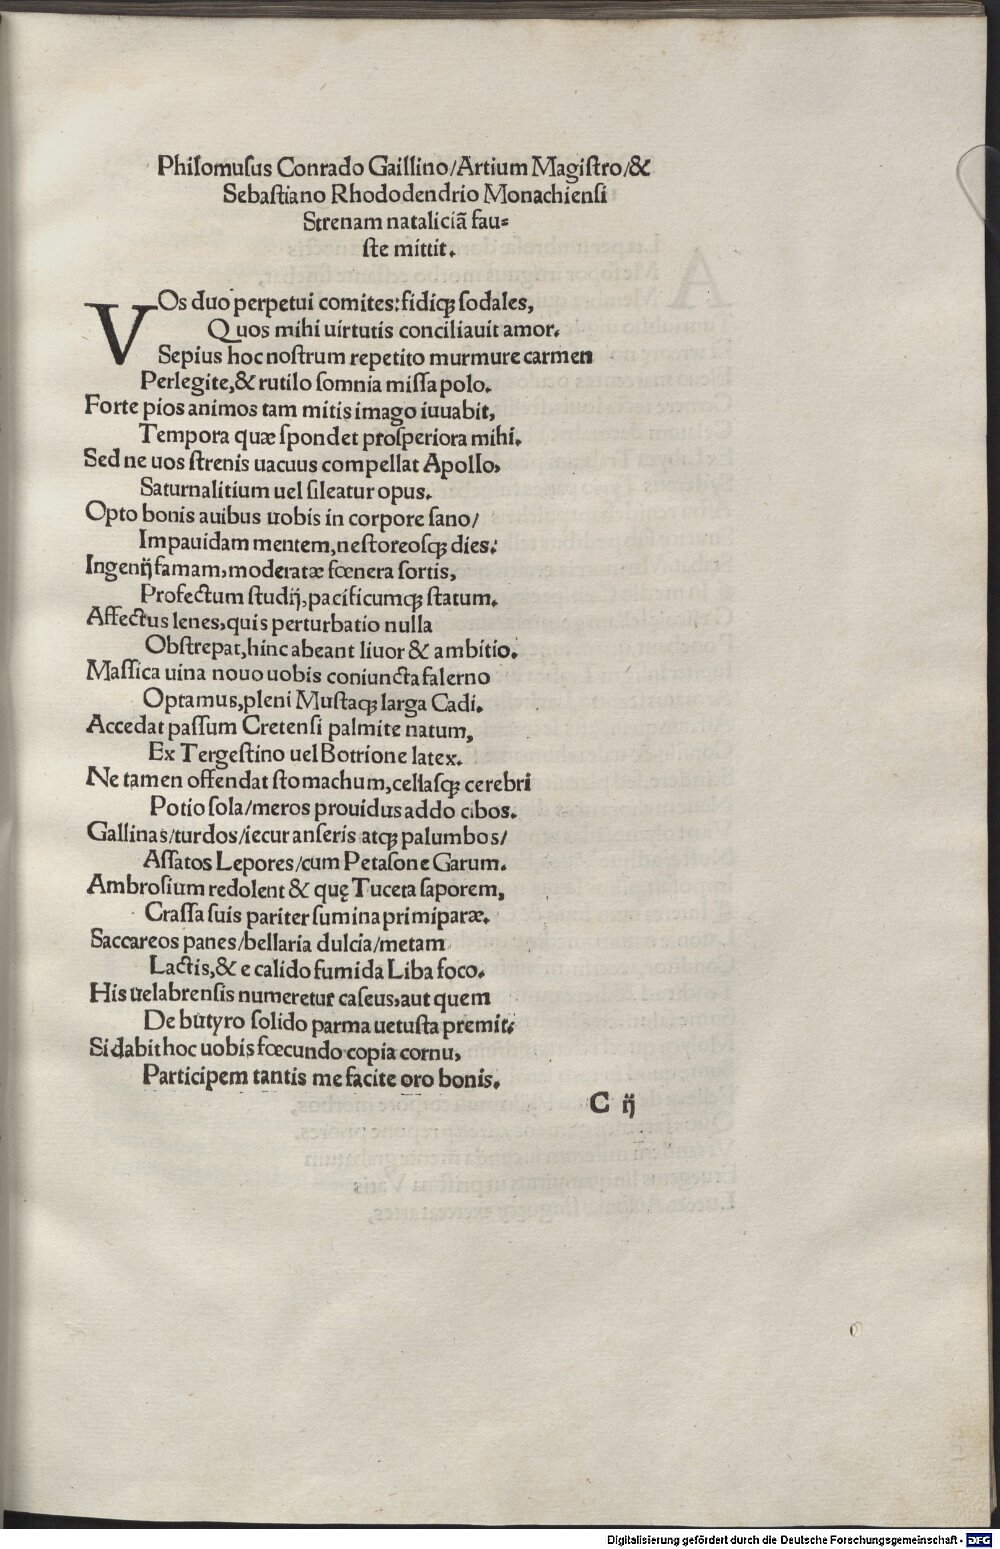 Philomusus Conrado Gaillino/Artium Magistro/&
Sebastiano Rhododendrio Monachiensi
Strenam nataliciã fau=
ste mittit.
VOs duo perpetui comites: fidiqꝫ sodales,
Quos mihi uirtutis conciliauit amor.
Sepius hoc nostrum repetito murmure carmen
Perlegite,& rutilo somnia missa polo.
Forte pios animos tam mitis imago iuuabit,
Tempora quæ spondet prosperiora mihi.
Sed ne uos strenis uacuus compellat Apollo,
Saturnalitium uel sileatur opus.
Opto bonis auibus uobis in corpore sano/
Impauidam mentem, nestoreosqꝫ dies:
Ingenij famam, moderatæ fœnera sortis,
Profectum studij, pacificumqꝫ statum.
Affectus lenes, quis perturbatio nulla
Obstrepat, hinc abeant liuor & ambitio.
Massica uina nouo uobis coniuncta falerno
Optamus, pleni Mustaqꝫ larga Cadi.
Accedat passum Cretensi palmite natum,
Ex Tergestino uel Botrione latex.
Ne tamen offendat stomachum, cellasqꝫ cerebri
Potio sola/meros prouidus addo cibos.
Gallinas/turdos/iecur anseris atqꝫ palumbos/
Assatos Lepores/cum Petasone Garum.
Ambrosium redolent & quę Tuceta saporem,
Crassa suis pariter sumina primiparæ.
Saccareos panes/bellaria dulcia/metam
Lactis,& e calido fumida Liba foco.
His uelabrensis numeretur caseus, aut quem
De butyro solido parma uetusta premit:
Si dabit hoc uobis fœcundo copia cornu,
Participem tantis me facite oro bonis.
C ij
Digitalisierung gefördert durch die Deutsche Forschungsgemeinschaft - DFG